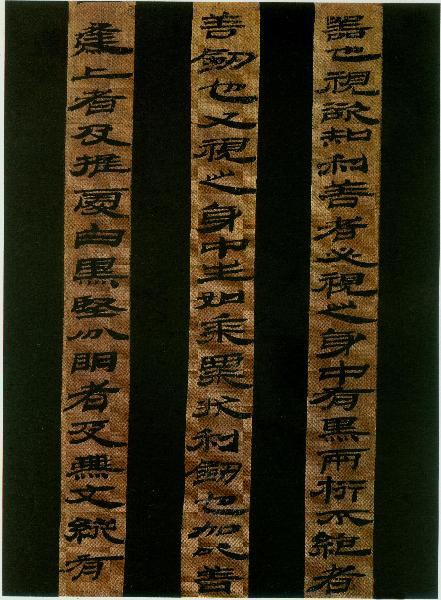 器也視欲知利善者必視之身中有黑兩桁不絕者
善劒也又視之身中生如黍粟狀利劒也加以善
上者及推處白黑堅分明者及無文縱有